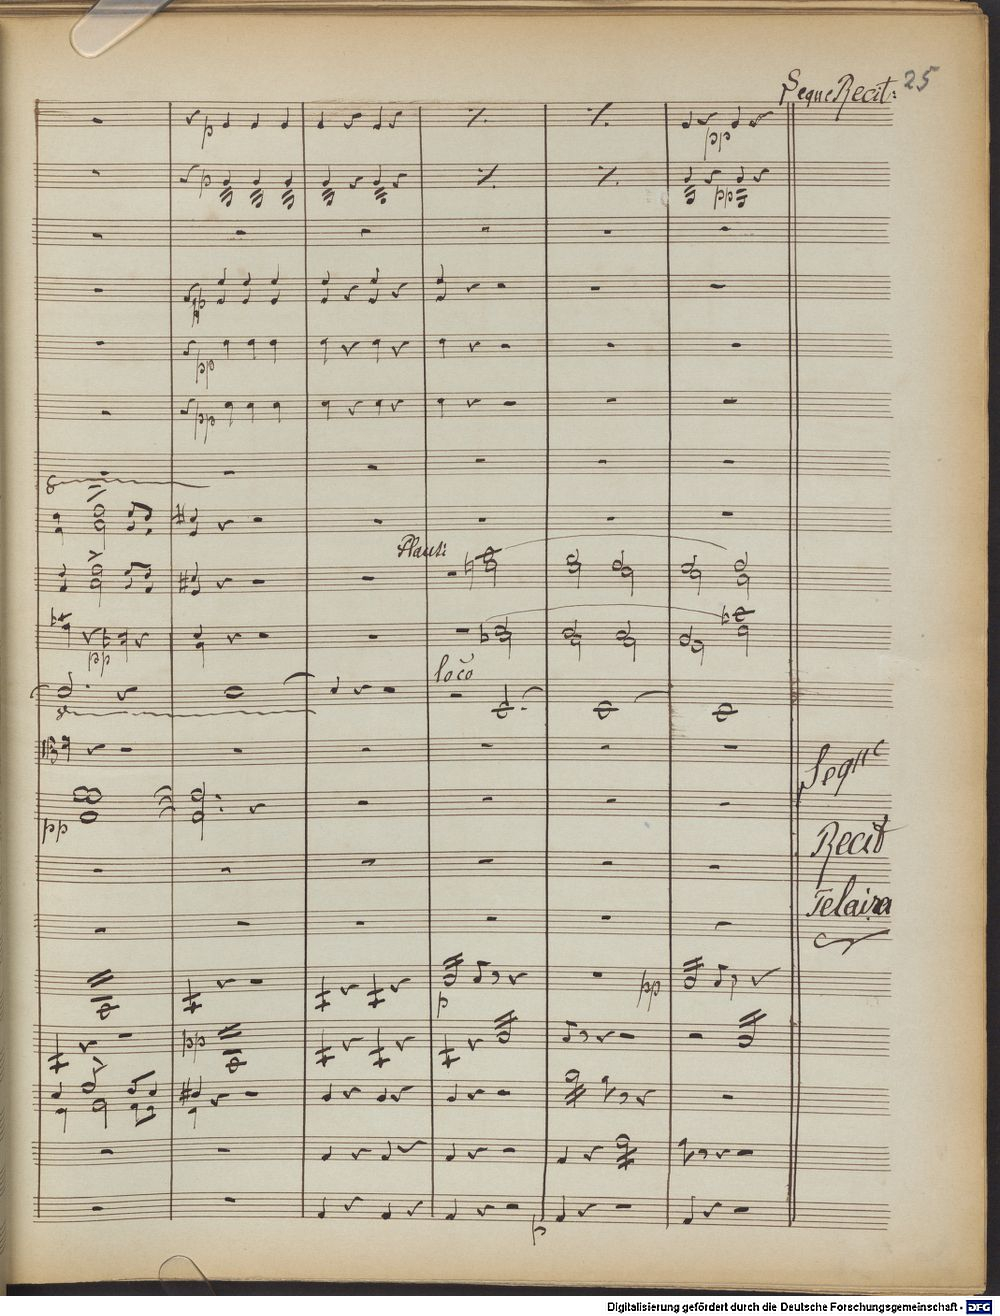 Segue Recit: 25
p
pp
p
pp
pp
pp
pp
8
Flauti
pp
loco
8
Segue
pp
Recit
Telaira
p
pp
pp
p
Digitalisierung gefördert durch die Deutsche Forschungsgemeinschaft - DFG